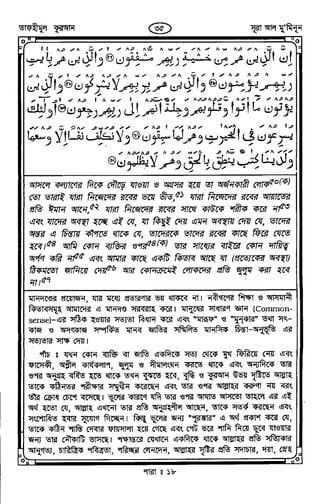 তাফহীমুল কুরআন
৩৫
সূরা আল মু'মিনূন
إِنَّ الَّذِينَ هُمْ مِّنْ خَشْيَةِ رَبِّهِمْ مُّشْفِقُونَ ۝ وَالَّذِينَ هُمْ بِاٰيٰتِ
رَبِّهِمْ يُؤْمِنُونَ ۝ وَالَّذِينَ هُمْ بِرَبِّهِمْ لَا يُشْرِكُونَ ۝ وَالَّذِينَ
يُؤْتُونَ مَا اٰتَوْا وَّقُلُوبُهُمْ وَجِلَةٌ أَنَّهُمْ إِلٰى رَبِّهِمْ رٰجِعُونَ ۝ أُولٰئِكَ
يُسٰرِعُونَ فِي الْخَيْرٰتِ وَهُمْ لَهَا سٰبِقُونَ ۝ وَلَا نُكَلِّفُ نَفْسًا إِلَّا وُسْعَهَا
وَلَدَيْنَا كِتٰبٌ يَّنْطِقُ بِالْحَقِّ وَهُمْ لَا يُظْلَمُونَ ۝
আসলে কল্যাণের দিকে দৌড়ে যাওয়া ও অগ্রসর হয়ে তা অর্জনকারী লোক৫০(ক)
তো তারাই যারা নিজেদের রবের ভয়ে ভীত,৫১ যারা নিজেদের রবের আয়াতের
প্রতি ঈমান আনে,৫২ যারা নিজেদের রবের সাথে কাউকে শরীক করে না৫৩
এবং যাদের অবস্থা হচ্ছে এই যে, যা কিছুই দেয় এমন অবস্থায় দেয় যে, তাদের
অন্তর এ চিন্তায় কাঁপতে থাকে যে, তাদেরকে তাদের রবের কাছে ফিরে যেতে
হবে।৫৪ আমি কোন ব্যক্তির ওপর৫৪(ক) তার সাধ্যের বাইরে কোন দায়িত্ব
অর্পণ করি না৫৫ এবং আমার কাছে একটি কিতাব আছে যা (প্রত্যেকের অবস্থা)
ঠিকমতো জানিয়ে দেয়৫৬ আর কোনক্রমেই লোকদের প্রতি জুলুম করা হবে
না।৫৭
মানদণ্ডের প্রয়োজন, যার মধ্যে প্রতারণার ভয় থাকবে না। নবীগণের শিক্ষা ও আসমানী
কিতাবসমূহ আমাদের এ মানদণ্ড সরবরাহ করে। মানুষের সাধারণ জ্ঞান (Common-
sense)-এর সঠিক হওয়ার সত্যতা বিধান করে এবং "মারূফ" ও "মুনকার" তথা সৎ-
কাজ ও অসৎকাজ সম্পর্কিত মানব জাতির সম্মিলিত মানসিক চিন্তা-অনুভূতি এর
সত্যতার সাক্ষ দেয়।
পাঁচ : যখন কোন ব্যক্তি বা জাতি একদিকে সত্য থেকে মুখ ফিরিয়ে নেয় এবং
ফাসেকী, অশ্লীল কার্যকলাপ, জুলুম ও সীমালংঘন করতে থাকে এবং অন্যদিকে তার
ওপর অনুগ্রহ বর্ষিত হতে থাকে তখন বুঝতে হবে, বুদ্ধি ও কুরআন উভয় দৃষ্টিতে আল্লাহ
তাকে কঠিনতর পরীক্ষার সম্মুখীন করেছেন এবং তার ওপর আল্লাহর করুণা নয় বরং
তাঁর ক্রোধ চেপে বসেছে। ভুলের কারণে যদি তার ওপর আঘাত আসতো তাহলে এর এই
অর্থ হতো যে, আল্লাহ এখনো তার প্রতি অনুগ্রহশীল আছেন, তাকে সতর্ক করছেন এবং
সংশোধিত হবার সুযোগ দিচ্ছেন। কিন্তু ভুলের জন্য "পুরস্কার" এ অর্থ প্রকাশ করে যে,
তাকে কঠিন শাস্তি দেবার ফায়সালা হয়ে গেছে এবং পেট ভরে পানি নিয়ে ডুবে যাওয়ার
জন্য তার নৌকাটি ভাসছে। পক্ষান্তরে যেখানে একদিকে থাকে আল্লাহর প্রতি সত্যিকার
আনুগত্য, চারিত্রিক পবিত্রতা, পরিচ্ছন্ন লেনদেন, আল্লাহর সৃষ্টির প্রতি সদাচার, দয়া, স্নেহ
পারা : ১৮